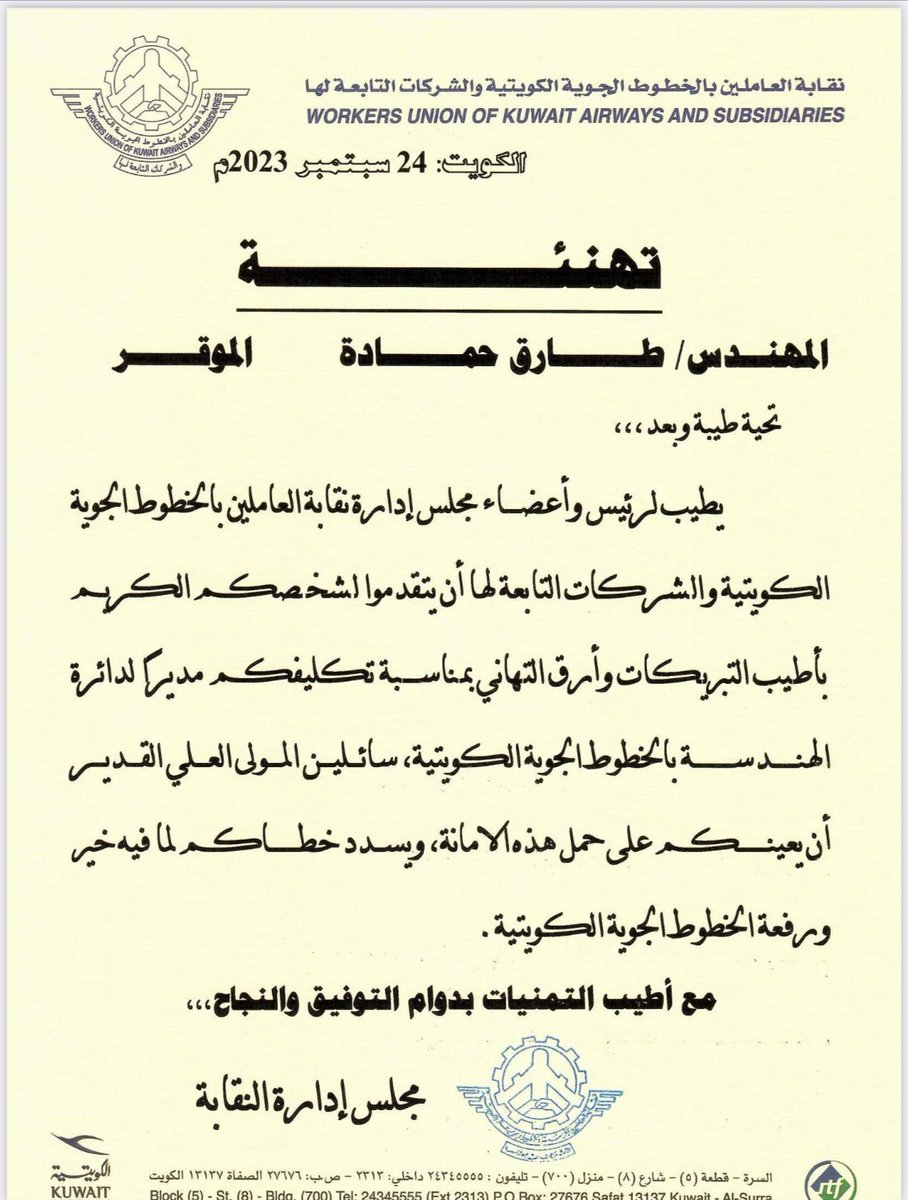 نقابة العاملين بالخطوط الجوية الكويتية والشركات التابعة لها
WORKERS UNION OF KUWAIT AIRWAYS AND SUBSIDIARIES
نقابة العاملين بالخطوط الجوية الكويتية
WORKERS UNION OF KUWAIT AIRWAYS AND SUBSIDIARIES
والشركات التابعة لها
الكويت: 24 سبتمبر 2023م
تهنئة
المهندس/ طارق حمادة الموقر
تحية طيبة وبعد ،،،
يطيب لرئيس وأعضاء مجلس إدارة نقابة العاملين بالخطوط الجوية
الكويتية والشركات التابعة لها أن يتقدموا لشخصكم الكريم
بأطيب التبريكات وأرق التهاني بمناسبة تكليفكم مديراً لدائرة
الهندسة بالخطوط الجوية الكويتية، سائلين المولى العلي القدير
أن يعينكم على حمل هذه الامانة، ويسدد خطاكم لما فيه خير
ورفعة الخطوط الجوية الكويتية .
مع أطيب التمنيات بدوام التوفيق والنجاح،،،
مجلس إدارة النقابة
الكويتية
KUWAIT
السرة - قطعة (٥) - شارع (٨) - منزل (٧٠٠) - تليفون : ٢٤٣٤٥٥٥٥ داخلي: ٢٣١٣ - ص.ب: ٢٧٦٧٦ الصفاة ١٣١٣٧ الكويت
Block (5) - St. (8) - Bldg. (700) Tel: 24345555 (Ext 2313) P.O Box: 27676 Safat 13137 Kuwait - Al-Surra
itf